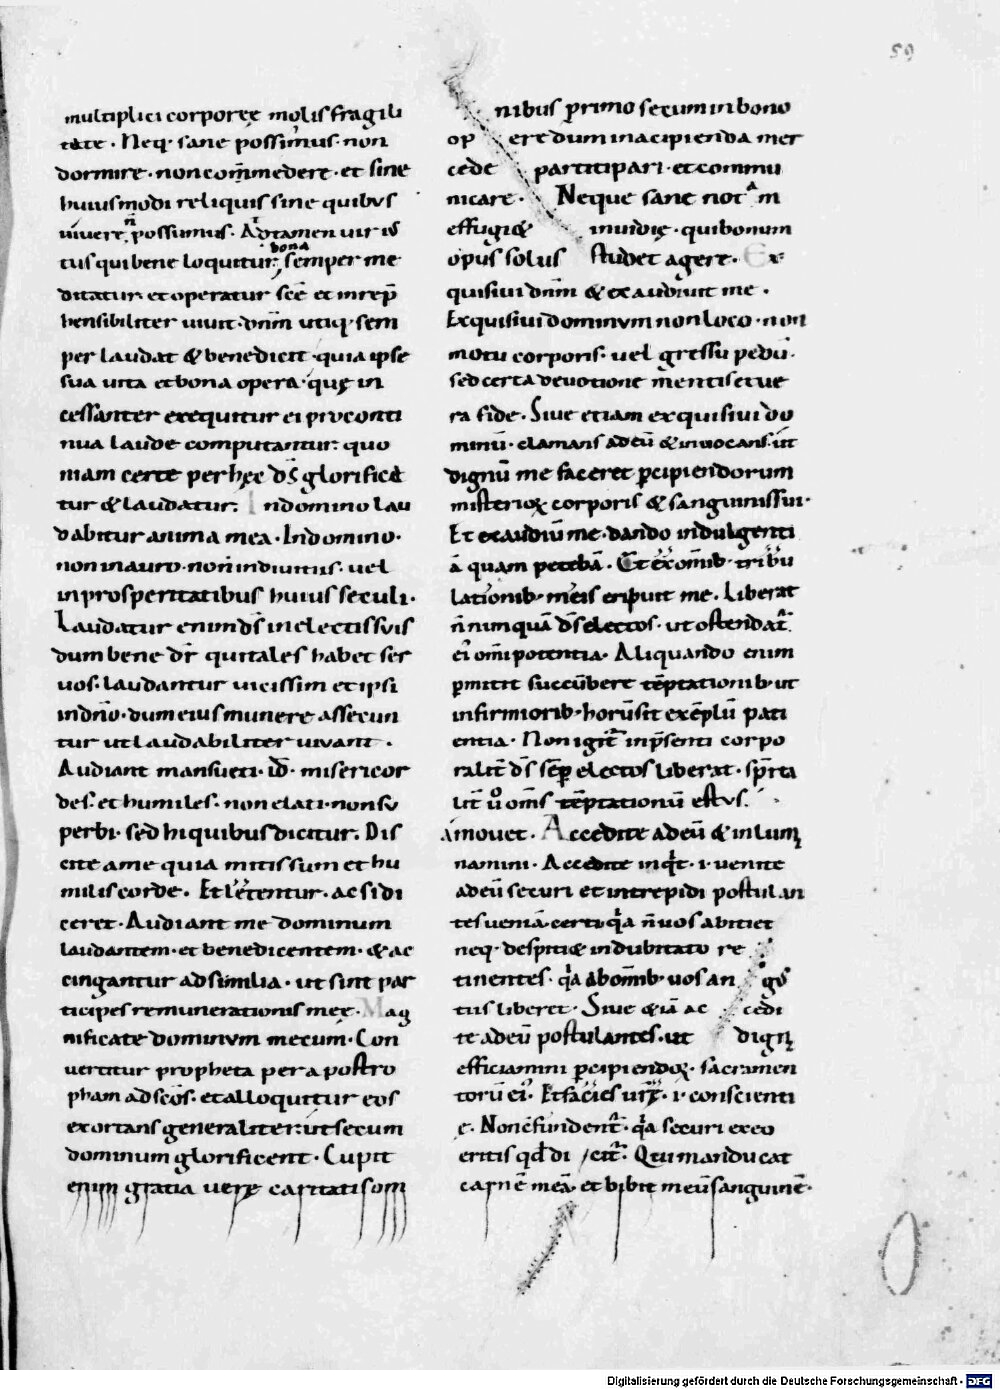 59
multiplici corporeę molis fragili
tate · Neq· sane possimus · non
dormire · non com̄medere · et sine
huiusmodi reliquis sine quibus
vivere n̄ possumus · Attamen vir is
tus qui bene loquitur; bona semper me
ditatur · et operatur scē et inrep̄
hensibiliter vivit · dn̄m utiq· sem
per laudat & benedicit · quia ipse
sua vita et bona opera · quę in
cessanter exequitur ei pro conti
nua laude computantur · quo
niam certe per hęc d̄s glorifica
tur & laudatur · In domino lau
dabitur anima mea · In domino ·
non in auro · non in divitiis · vel
in prosperitatibus huius seculi ·
Laudatur enim d̄s in electis suis
dum bene dr̄ qui tales habet ser
vos · laudantur vicissim et ipsi
in dn̄o · dum eius munere assecun
tur ut laudabiliter vivant ·
Audiant mansueti · id̄ · misericor
des · et humiles · non elati · non su
perbi · sed hi quibus dicitur · Dis
cite a me quia mitis sum et hu
milis corde · Et lętentur · ac si di
ceret · Audiant me dominum
laudantem · et benedicentem · & ac
cingantur ad similia · ut sint par
ticipes remunerationis meę · Mag
nificate dominum mecum · Con
vertitur propheta per apostro
pham ad scōs · et alloquitur eos
exortans generaliter · ut secum
dominum glorificent · Cupit
enim gratia verę caritatis om
nibus primo secum in bono
op ere dum in acipienda mer
cede partitipari · et commu
nicare · Neque sane notam
effugi& invidię · qui bonum
opus solus studet agere · Ex
quisivi dn̄m & exaudivit me ·
Exquisivi dominum non loco · non
motu corporis · vel gressu pedū ·
sed certa devotione mentis et ve
ra fide · Sive etiam exquisivi do
minū · clamans ad eū & invocans · ut
dignū me faceret p̱cipiendorum
misterioꝝ corporis & sanguinis sui ·
Et exaudiū me · dando indulgenti
ā quam petebā · Et ex om̄ib· tribu
lationib· meis eripuit me · Liberat
n̄ numquā d̄s electos · ut ostendat̄
ei omīpotentia · Aliquando enim
p̱mitit succūbere tēptationib· ut
infirmiorib· horū sit exēplū pati
entia · Non igit̄ in p̄senti corpo
ralit̄ d̄s semp̱ electos liberat · sp̄ita
lit̄ v̊ om̄s tēptationū estus
amovet · Accedite ad eū & inlum
namini · Accedite inq̄t · i· venite
ad eū securi et intrepidi postulan
tes veniā · certi q̄a n̄ vos abitiet
neq· despiti& indubitato re
tinentes · q̄a ab om̄ib· vos an gos
tiis liberet · Sive &iā ac cedi
te ad eū postulantes · ut digni
efficiamini p̱cipiendoꝝ · sacramen
torū ei' · Et facies vr̄ę · i· conscienti
ę · Non c̄fundent̄ · q̄a securi ex eo
eritis qd̄ di cit̄ · Qui manducat
carnē meā · et bibit meū sanguinē ·
Digitalisierung gefördert durch die Deutsche Forschungsgemeinschaft - DFG